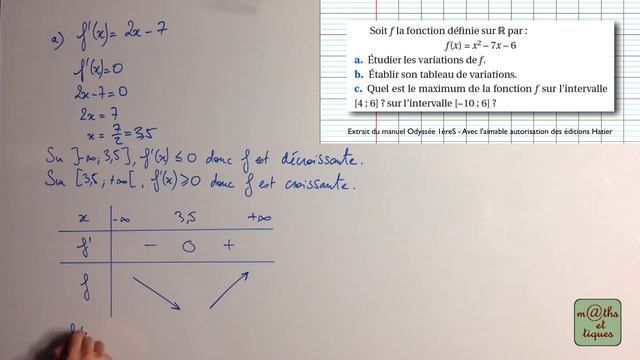 a) f'(x) = 2x - 7
f'(x) = 0
2x - 7 = 0
2x = 7
x = 7/2 = 3,5
Sur ]-∞; 3,5], f'(x) ≤ 0 donc f est décroissante.
Sur [3,5; +∞[, f'(x) ≥ 0 donc f est croissante.
x -∞ 3,5 +∞
f' - 0 +
f
Soit f la fonction définie sur ℝ par :
f(x) = x² – 7x – 6
a. Étudier les variations de f.
b. Établir son tableau de variations.
c. Quel est le maximum de la fonction f sur l'intervalle
[4 ; 6] ? sur l'intervalle [–10 ; 6] ?
Extrait du manuel Odyssée 1èreS - Avec l'aimable autorisation des éditions Hatier
m@ths
et
tiques